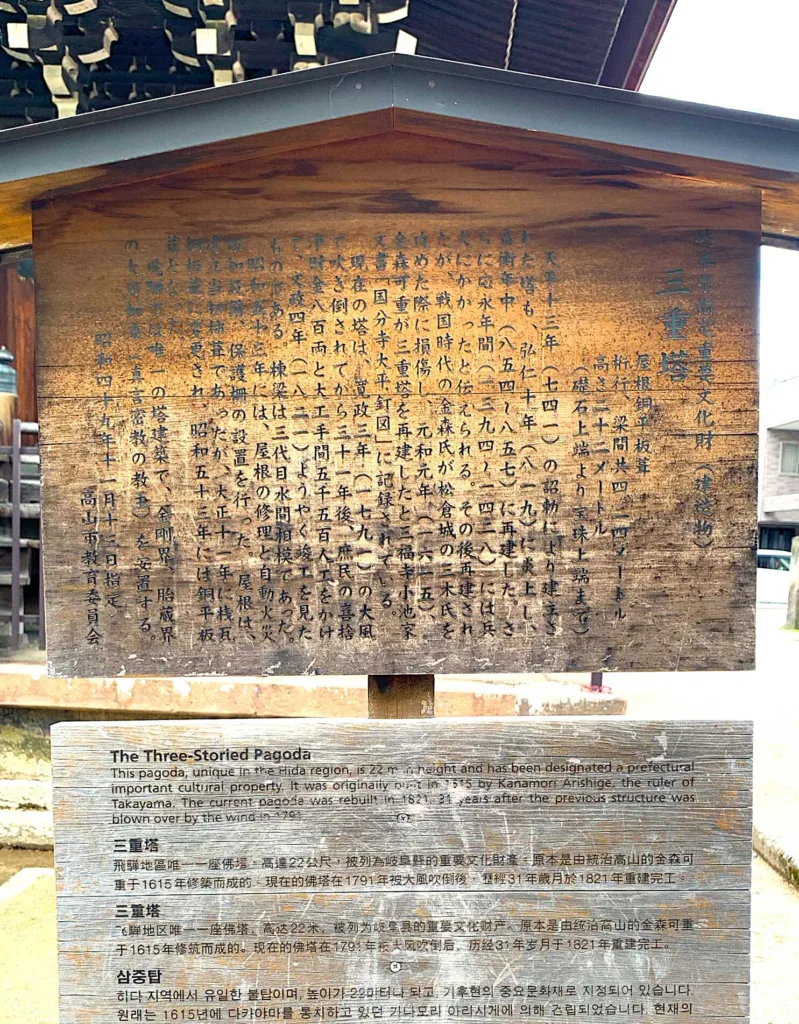 岐阜県指定重要文化財（建造物）
三重塔
屋根銅平板葺
桁行、梁間共四・二四メートル
高さ二十二メートル
（礎石上端より宝珠上端まで）
天平十三年（七四一）の詔勅により建立さ
れた塔も、弘仁十年（八一九）に炎上し、
斉衡年中（八五四～八五七）に再建した。さ
らに応永年間（一三九四～一四三八）には兵
火にかかったと伝えられる。その後再建され
たが、戦国時代の金森氏が松倉城の三木氏を
攻めた際に損傷し、元和元年（一六一五）、
金森可重が三重塔を再建したと三福寺小池家
文書「国分寺大平釘図」に記録されている。
現在の塔は、寛政三年（一七九一）の大風
で吹き倒されてから三十一年後、庶民の喜捨
浄財金八百両と大工手間五千五百人工をかけ
て、文政四年（一八二一）ようやく竣工を見た
ものである。棟梁は三代目水間相模であった。
昭和五十三年には、屋根の修理と自動火災
報知設備、保護柵の設置を行った。屋根は、
建立当初柿葺であったが、大正十一年に桟瓦
銅板葺に変更され、昭和五十三年には銅平板
葺となった。
飛騨では唯一の塔建築で、金剛界、胎蔵界
の大日如来（真言密教の教主）を安置する。
昭和四十九年十一月十三日指定
高山市教育委員会
The Three-Storied Pagoda
This pagoda, unique in the Hida region, is 22 m in height and has been designated a prefectural
important cultural property. It was originally built in 1615 by Kanamori Arishige, the ruler of
Takayama. The current pagoda was rebuilt in 1821, 31 years after the previous structure was
blown over by the wind in 1791.
三重塔
飛驒地區唯一一座佛塔。高達22公尺，被列為岐阜縣的重要文化財產。原本是由統治高山的金森可
重于1615年修築而成的。現在的佛塔在1791年被大風吹倒後，歷經31年歲月於1821年重建完工。
三重塔
飞騨地区唯一一座佛塔。高达22米，被列为岐阜县的重要文化财产。原本是由统治高山的金森可重
于1615年修筑而成的。现在的佛塔在1791年被大风吹倒后，历经31年岁月于1821年重建完工。
삼중탑
히다 지역에서 유일한 불탑이며, 높이가 22미터나 되고, 기후현의 중요문화재로 지정되어 있습니다.
원래는 1615년에 다카야마를 통치하고 있던 가나모리 아리시게에 의해 건립되었습니다. 현재의